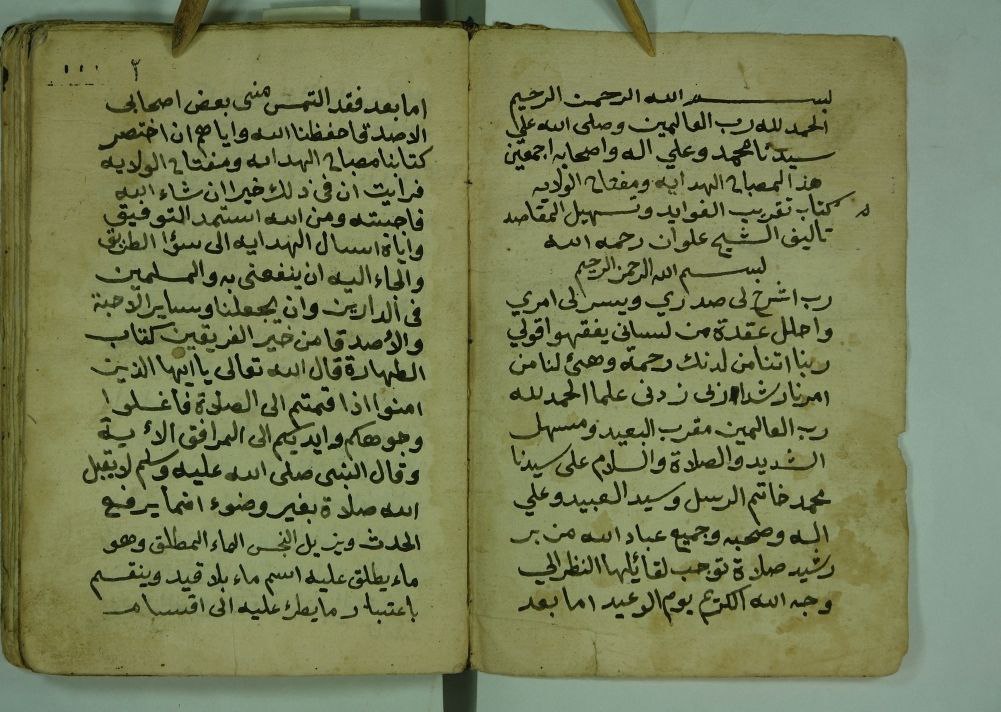 بسم الله الرحمن الرحيم
الحمد لله رب العالمين وصلى الله علي
سيدنا محمد وعلي اله واصحابه اجمعين
هذا المصباح الهدايه ومفتاح الولايه
كتاب تقريب الفوايد وتسهيل المقاصد
تاليف الشيخ علوان رحمه الله
بسم الله الرحمن الرحيم
رب اشرح لي صدري ويسر لي امري
واحلل عقدة من لساني يفقهوا قولي
ربنا اتنا من لدنك رحمة وهيئ لنا من
امرنا رشدا زدني علما الحمد لله
رب العالمين مقرب البعيد ومسهل
الشديد والصلاة والسلام على سيدنا
محمد خاتم الرسل وسيد العبيد وعلي
اله وصحبه وجميع عباد الله من بر
رشيد صلاة توجب لقائلها النظر الي
وجه الله الكريم يوم الوعيد اما بعد
٣
اما بعد فقد التمس مني بعض اصحابي
الاصدقا حفظنا الله واياهم ان اختصر
كتابنا مصباح الهدايه ومفتاح الولايه
فرايت ان في ذلك خيرا ان شاء الله
فاجبته ومن الله استمد التوفيق
واياه اسال الهدايه الى سؤا الطريق
والجاء اليه ان ينفعني به والمسلمين
في الدارين وان يجعلنا وساير الاحبة
والأصدقا من خير الفريقين كتاب
الطهارة قال الله تعالى يا ايها الذين
امنوا اذا قمتم الى الصلاة فاغسلوا
وجوهكم وايديكم الى المرافق الأية
وقال النبي صلى الله عليه وسلم لا يقبل
الله صلاة بغير وضوء انما يرفع
الحدث ويزيل النجس الماء المطلق وهو
ماء يطلق عليه اسم ماء بلا قيد وينقسم
باعتبار ما يطرئ عليه الى اقسام